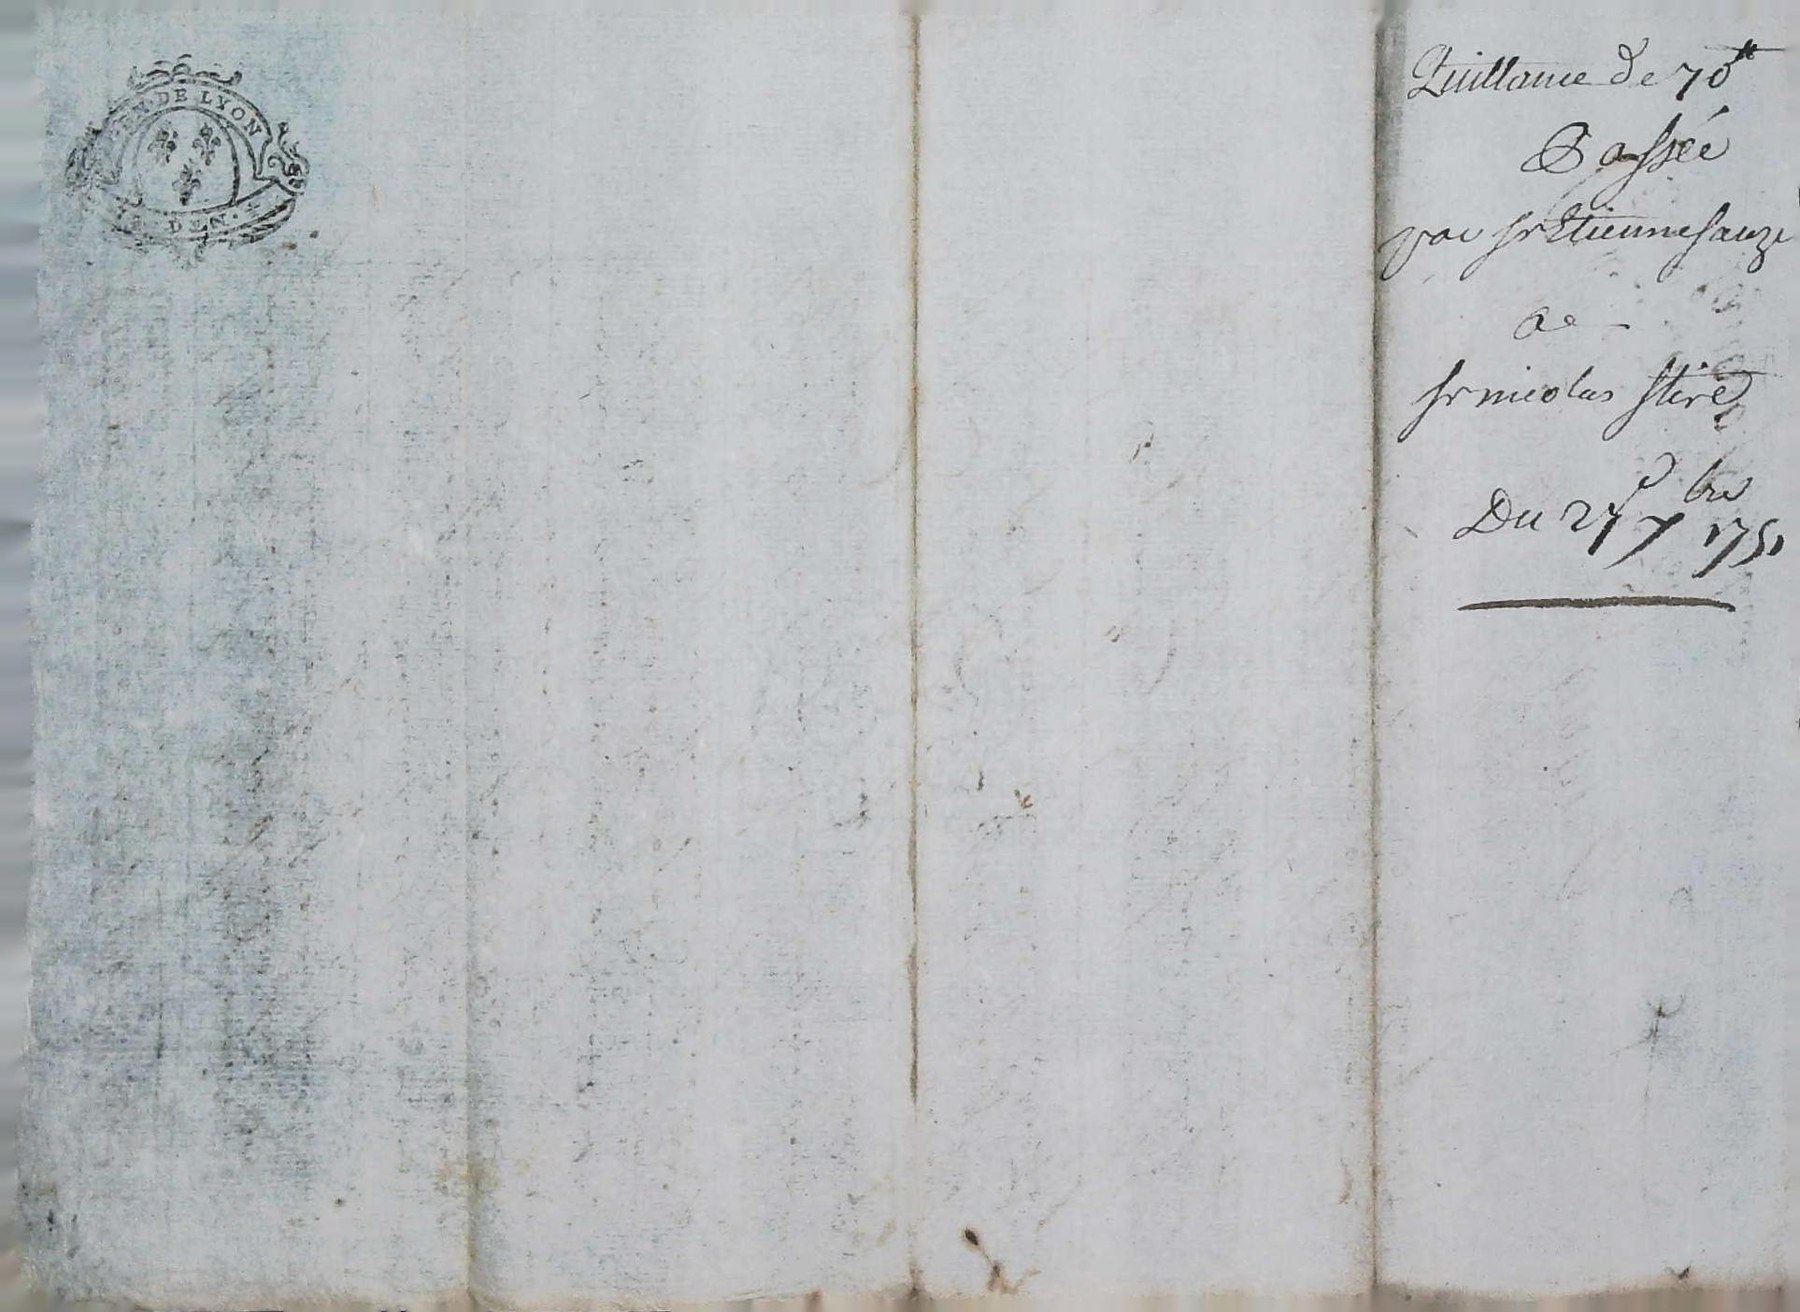 GEN. DE LYON
DEN.
Quittance de 70ᵗᵗ
Passée
par sr Etienne Sauze
a
sr nicolas
Du 27e xbre 1751